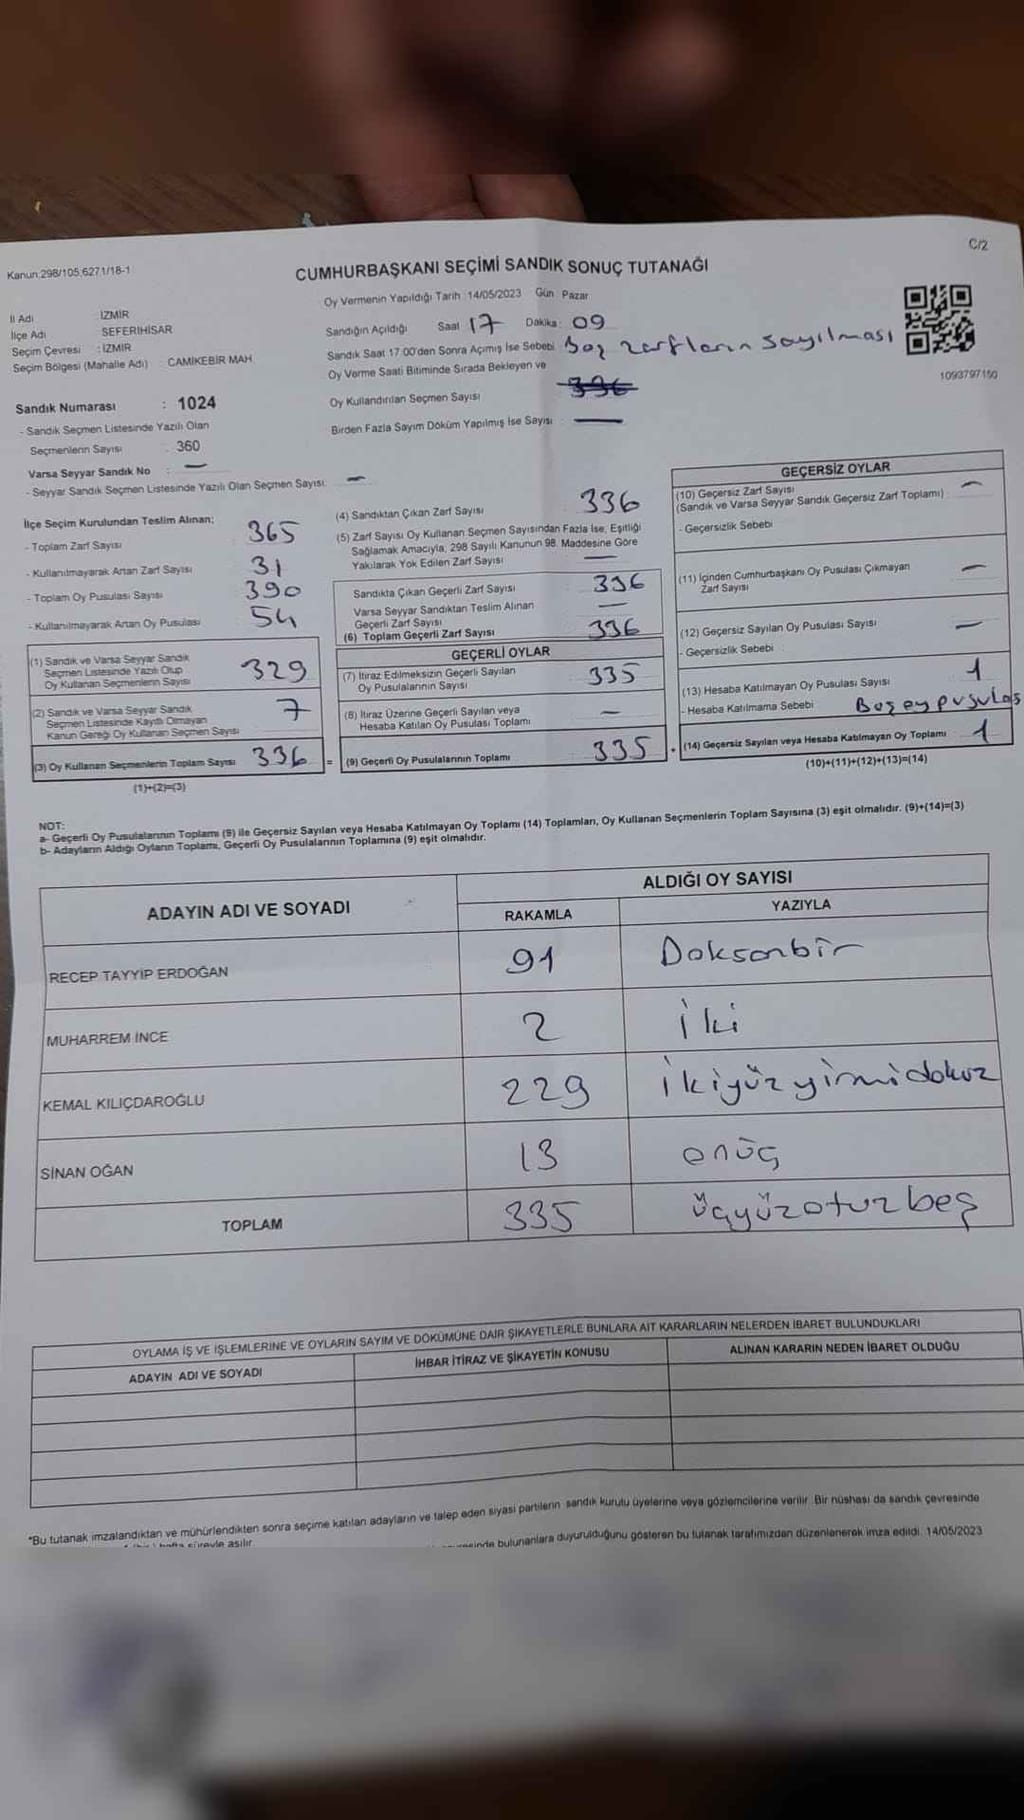 C/2
Kanun:298/105;6271/18-1
CUMHURBAŞKANI SEÇİMİ SANDIK SONUÇ TUTANAĞI
İl Adı İZMİR
İlçe Adı SEFERİHİSAR
Seçim Çevresi : İZMİR
Seçim Bölgesi (Mahalle Adı) : CAMİKEBİR MAH.
Sandık Numarası : 1024
- Sandık Seçmen Listesinde Yazılı Olan
Seçmenlerin Sayısı : 360
Varsa Seyyar Sandık No : —
- Seyyar Sandık Seçmen Listesinde Yazılı Olan Seçmen Sayısı: —
Oy Vermenin Yapıldığı Tarih :14/05/2023 Gün Pazar
Sandığın Açıldığı Saat 17 Dakika: 09
Sandık Saat 17:00'den Sonra Açımış İse Sebebi Boş zarfların sayılması
Oy Verme Saati Bitiminde Sırada Bekleyen ve
Oy Kullandırılan Seçmen Sayısı 336
Birden Fazla Sayım Döküm Yapılmış İse Sayısı —
1093797150
İlçe Seçim Kurulundan Teslim Alınan:
- Toplam Zarf Sayısı 365
- Kullanılmayarak Artan Zarf Sayısı 31
- Toplam Oy Pusulası Sayısı 390
- Kullanılmayarak Artan Oy Pusulası 54
(1) Sandık ve Varsa Seyyar Sandık
Seçmen Listesinde Yazılı Olup
Oy Kullanan Seçmenlerin Sayısı 329
(2) Sandık ve Varsa Seyyar Sandık
Seçmen Listesinde Kayıtlı Olmayan
Kanun Gereği Oy Kullanan Seçmen Sayısı 7
(3) Oy Kullanan Seçmenlerin Toplam Sayısı 336 =
(1)+(2)=(3)
(4) Sandıktan Çıkan Zarf Sayısı 336
(5) Zarf Sayısı Oy Kullanan Seçmen Sayısından Fazla İse, Eşitliği
Sağlamak Amacıyla, 298 Sayılı Kanunun 98. Maddesine Göre
Yakılarak Yok Edilen Zarf Sayısı —
Sandıkta Çıkan Geçerli Zarf Sayısı 336
Varsa Seyyar Sandıktan Teslim Alınan
Geçerli Zarf Sayısı —
(6) Toplam Geçerli Zarf Sayısı 336
GEÇERLİ OYLAR
(7) İtiraz Edilmeksizin Geçerli Sayılan
Oy Pusulalarının Sayısı 335
(8) İtiraz Üzerine Geçerli Sayılan veya
Hesaba Katılan Oy Pusulası Toplamı —
(9) Geçerli Oy Pusulalarının Toplamı 335 +
GEÇERSİZ OYLAR
(10) Geçersiz Zarf Sayısı —
(Sandık ve Varsa Seyyar Sandık Geçersiz Zarf Toplamı)
- Geçersizlik Sebebi
(11) İçinden Cumhurbaşkanı Oy Pusulası Çıkmayan
Zarf Sayısı —
(12) Geçersiz Sayılan Oy Pusulası Sayısı —
- Geçersizlik Sebebi
(13) Hesaba Katılmayan Oy Pusulası Sayısı 1
- Hesaba Katılmama Sebebi Boş oy pusulas
(14) Geçersiz Sayılan veya Hesaba Katılmayan Oy Toplamı 1
(10)+(11)+(12)+(13)=(14)
NOT:
a- Geçerli Oy Pusulalarının Toplamı (9) ile Geçersiz Sayılan veya Hesaba Katılmayan Oy Toplamı (14) Toplamları, Oy Kullanan Seçmenlerin Toplam Sayısına (3) eşit olmalıdır. (9)+(14)=(3)
b- Adayların Aldığı Oyların Toplamı, Geçerli Oy Pusulalarının Toplamına (9) eşit olmalıdır.
ADAYIN ADI VE SOYADI ALDIĞI OY SAYISI
RAKAMLA YAZIYLA
RECEP TAYYİP ERDOĞAN 91 Doksanbir
MUHARREM İNCE 2 İki
KEMAL KILIÇDAROĞLU 229 İkiyüzyirmidokuz
SİNAN OĞAN 13 onüç
TOPLAM 335 üçyüzotuzbeş
OYLAMA İŞ VE İŞLEMLERİNE VE OYLARIN SAYIM VE DÖKÜMÜNE DAİR ŞİKAYETLERLE BUNLARA AİT KARARLARIN NELERDEN İBARET BULUNDUKLARI
ADAYIN ADI VE SOYADI İHBAR İTİRAZ VE ŞİKAYETİN KONUSU ALINAN KARARIN NEDEN İBARET OLDUĞU
*Bu tutanak imzalandıktan ve mühürlendikten sonra seçime katılan adayların ve talep eden siyasi partilerin sandık kurulu üyelerine veya gözlemcilerine verilir. Bir nüshası da sandık çevresinde
hafta süreyle asılır. bulunanlara duyurulduğunu gösteren bu tutanak tarafımızdan düzenlenerek imza edildi. 14/05/2023